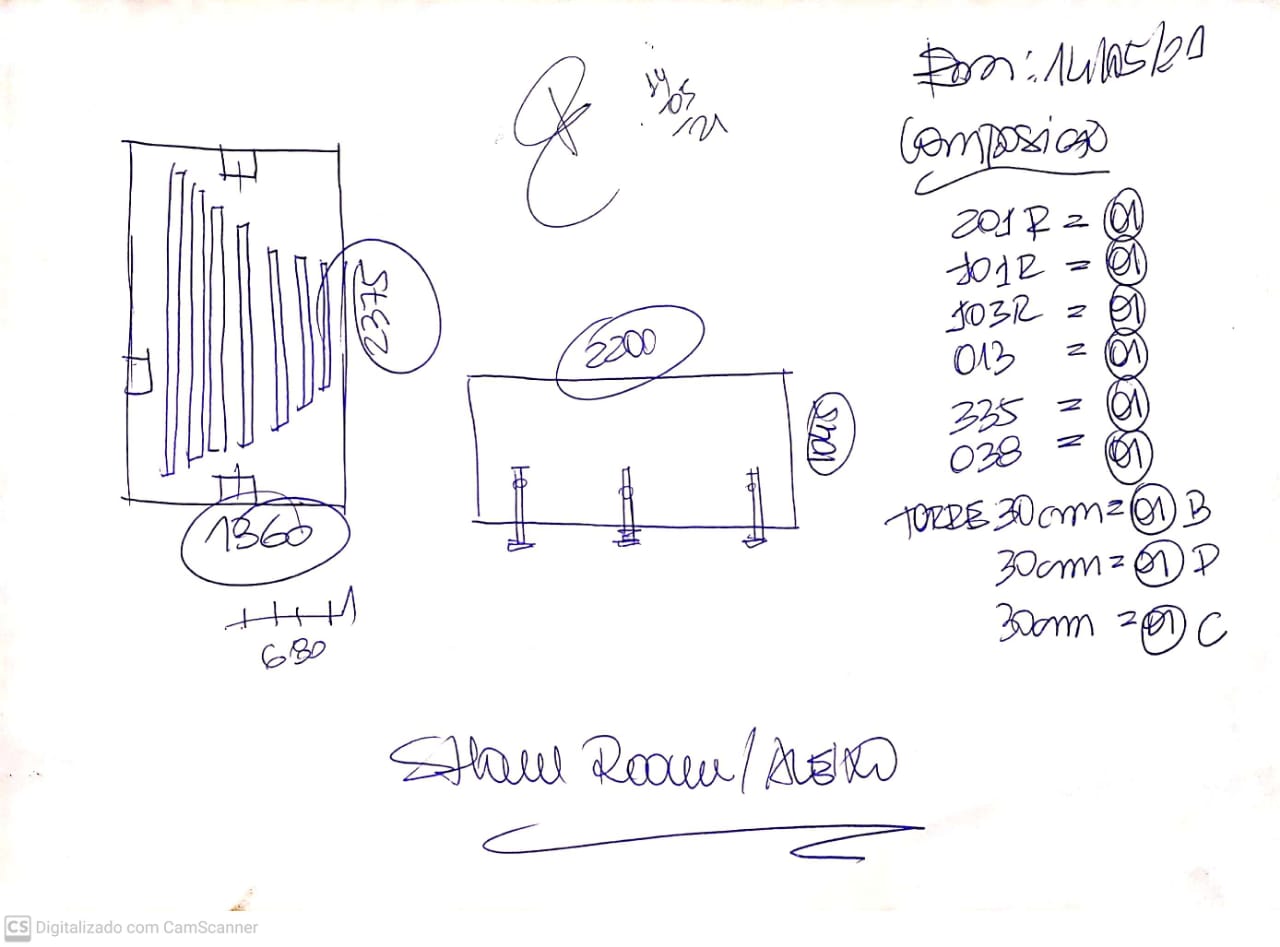 14/05/21
14
/05
/21
Composição
201R = 01
101R = 01
103R = 01
013 = 01
335 = 01
038 = 01
TORRE 30cm = 01 B
30cm = 01 P
30cm = 01 C
2375
2200
1045
1360
680
Show Room/
CS Digitalizado com CamScanner